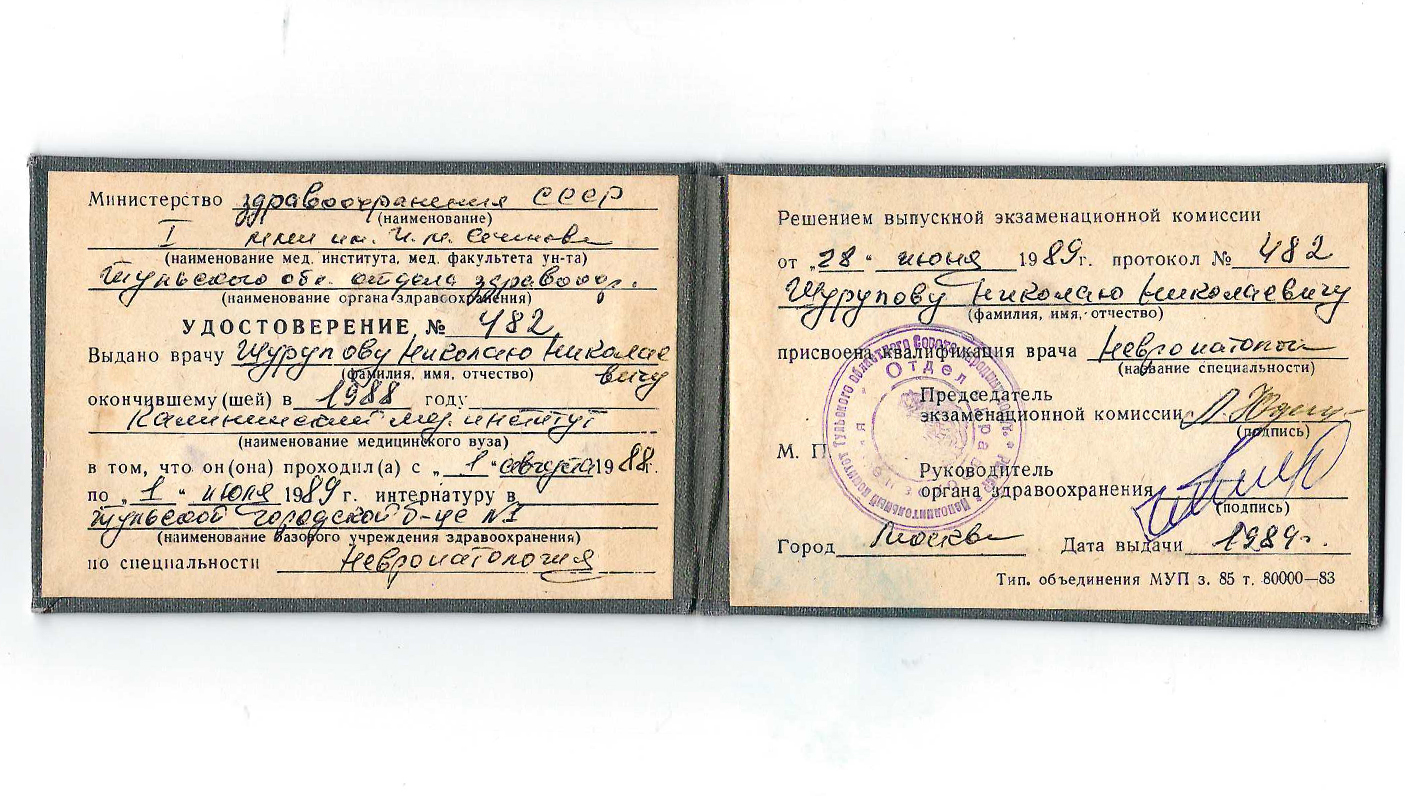 Министерство здравоохранения СССР
(наименование)
I ммм им. И. М. Сеченова
(наименование мед. института, мед. факультета ун-та)
Тульского обл. отдела здравоохр.
(наименование органа здравоохранения)
УДОСТОВЕРЕНИЕ № 482
Выдано врачу Шурупову Николаю Николае
(фамилия, имя, отчество) вичу
окончившему(шей) в 1988 году
Калининский мед. институт
(наименование медицинского вуза)
в том, что он(она) проходил(а) с „1“ августа 1988г.
по „1“ июля 1989 г. интернатуру в
Тульской городской б-це №1
(наименование базового учреждения здравоохранения)
по специальности Невропатология
Решением выпускной экзаменационной комиссии
от „28“ июня 1989г. протокол № 482
Шурупову Николаю Николаевичу
(фамилия, имя, отчество)
присвоена квалификация врача Невропатолог
(название специальности)
Председатель
экзаменационной комиссии
(подпись)
М. П.
Руководитель
органа здравоохранения
(подпись)
Город Москва Дата выдачи 1989г.
Тип. объединения МУП з. 85 т. 80000—83
Отдел
Тульского областного Совета